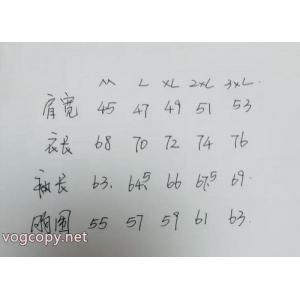 M L XL 2XL 3XL.
肩宽 45 47 49 51 53
衣长 68 70 72 74 76
袖长 63. 64.5 66 67.5 69.
胸围 55 57 59 61 63.
vogcopy.net vogcopy.net